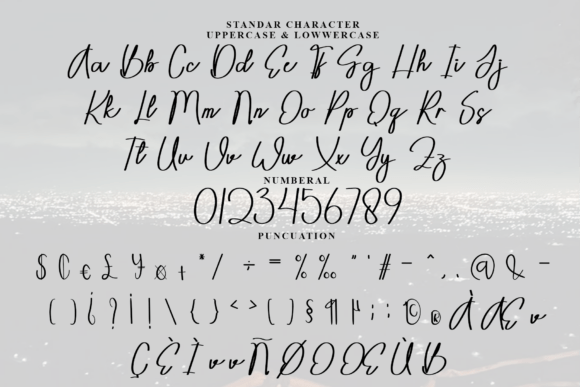 STANDAR CHARACTER
UPPERCASE & LOWWERCASE
Aa Bb Cc Dd Ee Ff Gg Hh Ii Jj
Kk Ll Mm Nn Oo Pp Qq Rr Ss
Tt Uu Vv Ww Xx Yy Zz
NUMBERAL
0123456789
PUNCUATION
$ ₵ € £ ¥ ¤ + * / ÷ = % ‰ " ' # – ^ , . @ & -
( ) ¿ ? ¡ ! \ { } < > [ ] § ¶ | ; : © ® À Æ
Ç È Ì Ñ Ø O Œ Ù ß